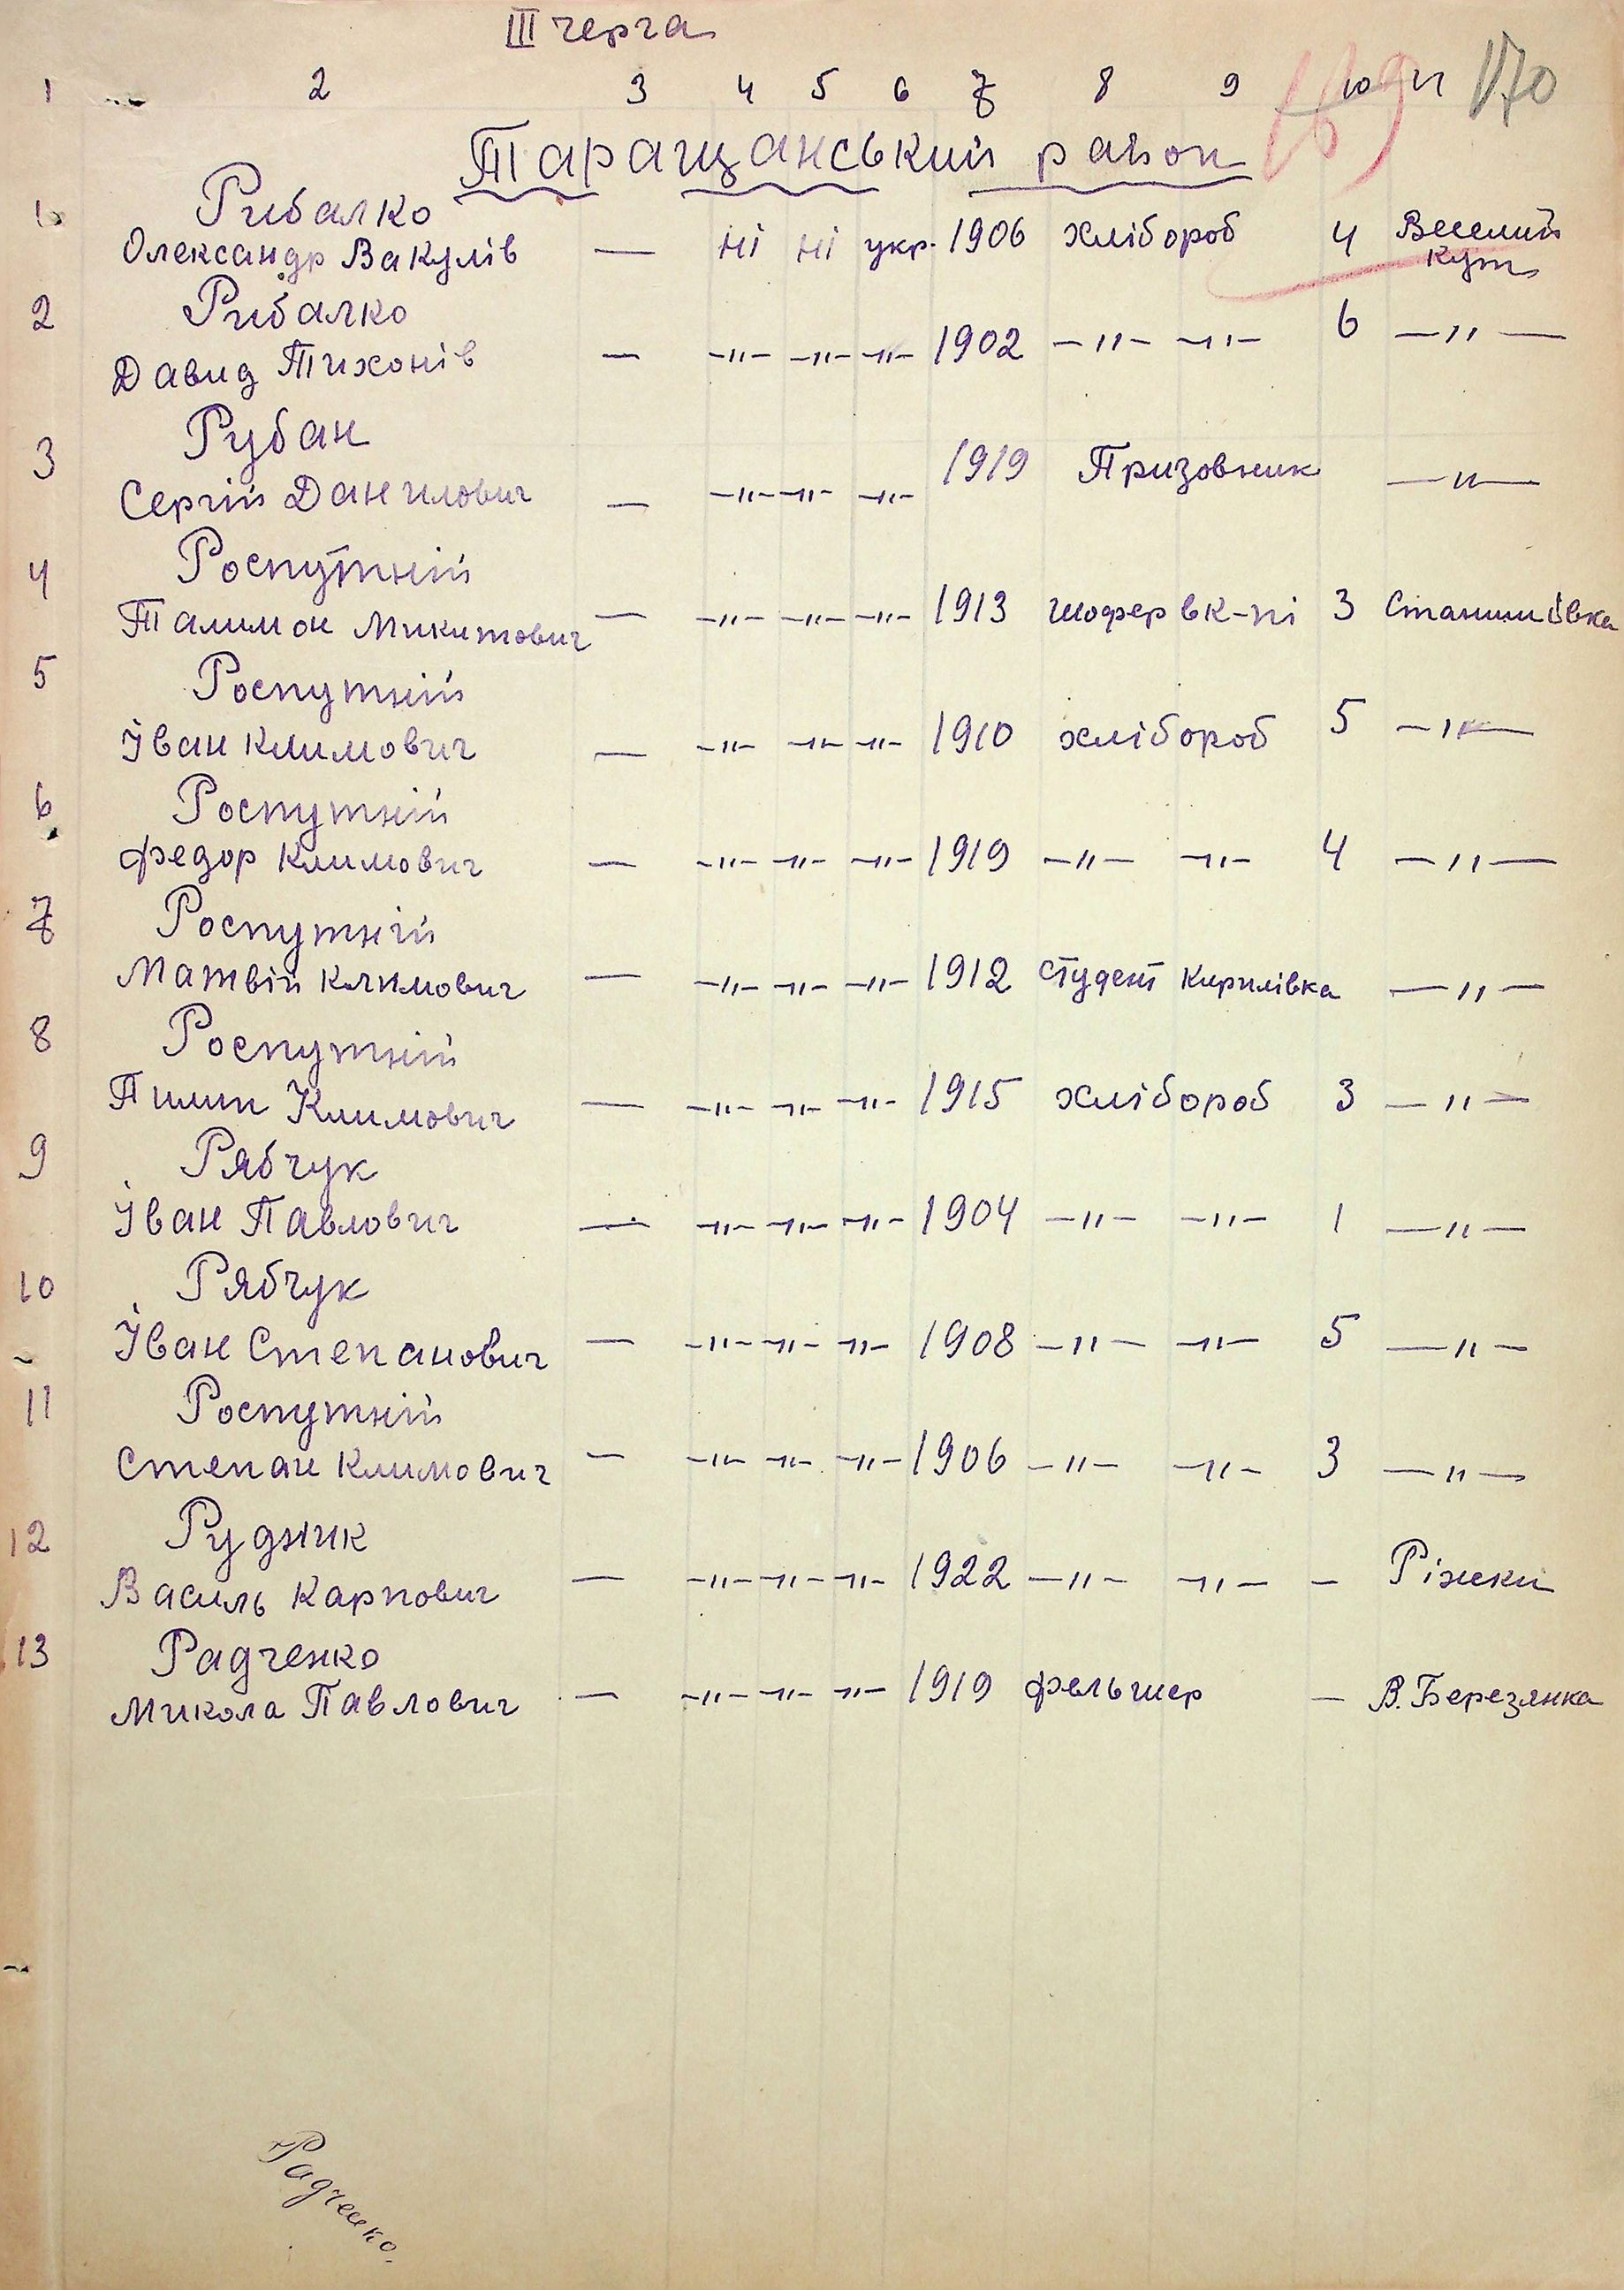 III черга
1 2 3 4 5 6 7 8 9 10 11 170
169
Таращанський район
1. Рибалко
Олександр Вакулів — ні ні укр. 1906 хлібороб 4 Веселий
Кут
2 Рибалко
Давид Тихонів — -"- -"- -"- 1902 -"- -"- 6 -"-
3 Рубан
Сергій Данилович — -"- -"- -"- 1919 Призовник -"-
4 Роспутній
Талимон Микитович — -"- -"- -"- 1913 шофер вк-пі 3 Станишівка
5 Роспутній
Іван Климович — -"- -"- -"- 1910 хлібороб 5 -"-
6 Роспутній
Федор Климович — -"- -"- -"- 1919 -"- -"- 4 -"-
7 Роспутній
Матвій Климович — -"- -"- -"- 1912 студент Кирилівка -"-
8 Роспутній
Пилип Климович — -"- -"- -"- 1915 хлібороб 3 -"-
9 Рябчук
Іван Павлович — -"- -"- -"- 1904 -"- -"- 1 -"-
10 Рябчук
Іван Степанович — -"- -"- -"- 1908 -"- -"- 5 -"-
11 Роспутній
Степан Климович — -"- -"- -"- 1906 -"- -"- 3 -"-
12 Рудник
Василь Карпович — -"- -"- -"- 1922 -"- -"- — Ріжки
13 Радченко
Микола Павлович — -"- -"- -"- 1919 фельшер — В. Березянка
Радченко.